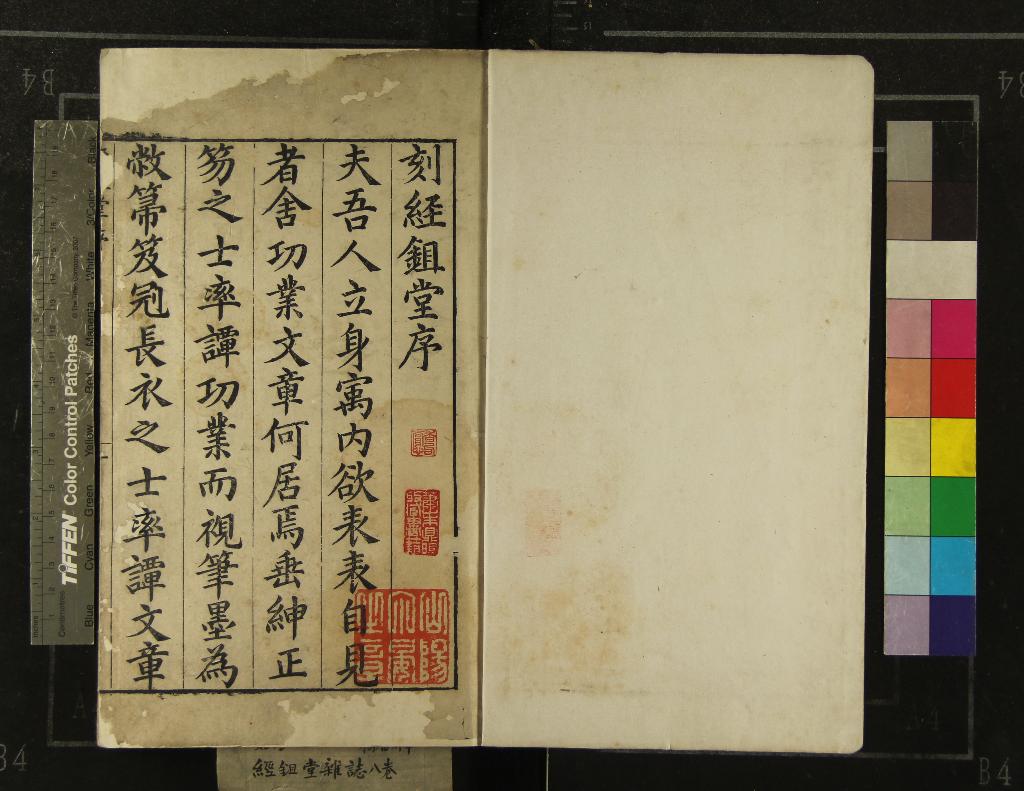 刻經鉏堂序
夫吾人立身寓内欲表表自見
者舍功業文章何居焉垂紳正
笏之士率譚功業而視筆墨為
敝箒笈冠長衣之士率譚文章
經鉏堂雜誌八卷
TIFFEN Color Control Patches
Blue Cyan Green Yellow Red Magenta White 3/Color Black
Centimetres
Inches
B4
B4
B4
B4
A4